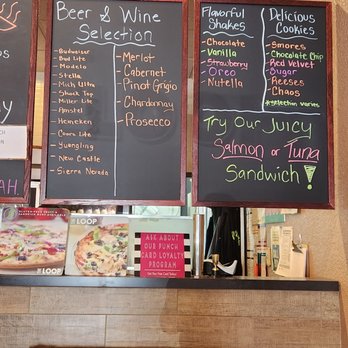 Beer & Wine
Selection
Budweiser
Bud Lite
Modelo
Stella
Mich Ultra
Shock Top
Miller Lite
Amstel
Heineken
Coors Lite
Yuengling
New Castle
Sierra Nevada
Merlot
Cabernet
Pinot Grigio
Chardonnay
Prosecco
Flavorful
Shakes
Chocolate
Vanilla
Strawberry
Oreo
Nutella
Delicious
Cookies
Smores
Chocolate Chip
Red Velvet
Sugar
Reeses
Chaos
*Selection varies
Try Our Juicy
Salmon or Tuna
Sandwich!
AH
LOOP
LOOP
ASK ABOUT
OUR PUNCH
CARD LOYALTY
PROGRAM